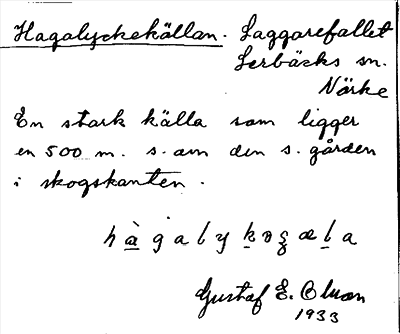 Hagalyckekällan. Laggarefallet
Lerbäcks sn.
Närke
En stark källa som ligger
en 500 m. s. om den s. gården
i skogskanten.
Gustaf E. Olsson
1933